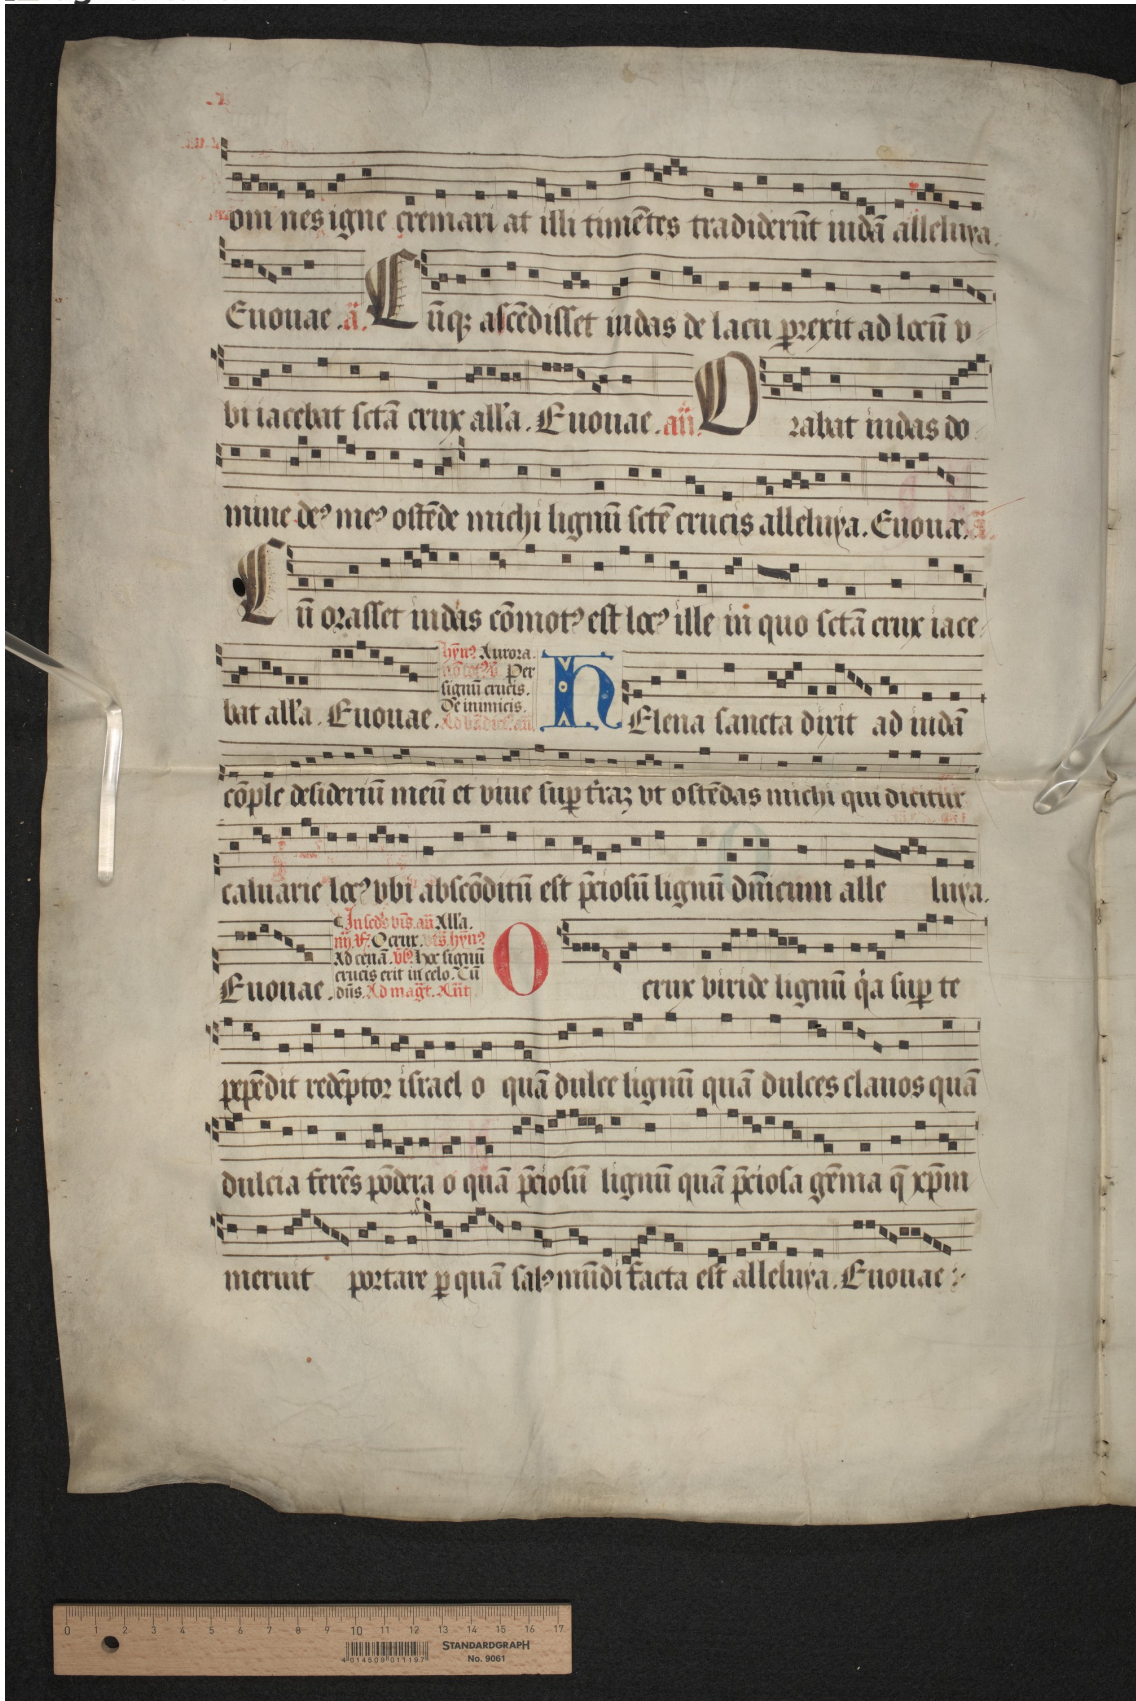 om nes igne cremari at illi timẽtes tradiderũt iudã alleluya.
Euouae . ã. Cũq; ascẽdisset iudas de lacu ꝑrexit ad locũ v
bi iacebat sctã crux all'a . Euouae . añ. Orabat iudas do
mine deꝰ meꝰ ostẽde michi lignũ sctẽ crucis alleluya. Euouae. ã.
Cũ orasset iudas cõmotꝰ est locꝰ ille in quo sctã crux iace
bat all'a . Euouae .
hỹnꝰ Aurora.
Per
signũ crucis.
De inimicis.
HElena sancta dixit ad iudã
cõple desideriũ meũ et viue suꝑ t'raz vt ostẽdas michi qui dicitur
caluarie locꝰ vbi abscõditũ est p̃ciosũ lignũ dñicum alle luya.
Euouae .
In scd'is vs̃. añ All'a.
O crux. hỹnꝰ
Ad cenã. Hoc signũ
crucis erit in celo. Cũ
dñs. Ad mag̃t. Añt
O crux viride lignũ q̃a suꝑ te
ꝑpẽdit redẽptor israel o quã dulce lignũ quã dulces clauos quã
dulcia ferẽs põdera o quã p̃ciosũ lignũ quã p̃ciosa gẽma q̃ xp̃m
meruit portare ꝑ quã salꝰ mũdi facta est alleluya . Euouae
0 1 2 3 4 5 6 7 8 9 10 11 12 13 14 15 16 17
4 014509 011197
STANDARDGRAPH
No. 9061